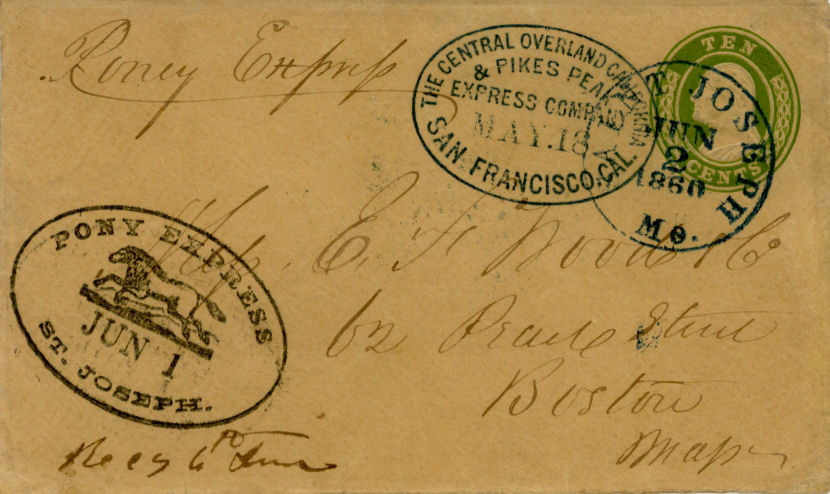 Pony Express
THE CENTRAL OVERLAND CALIFORNIA
& PIKES PEAK
EXPRESS COMPANY
MAY.18
SAN FRANCISCO.CAL.
TEN
CENTS
ST JOSEPH
JUN
2
1860
Mo.
PONY EXPRESS
JUN 1
ST. JOSEPH.
Mess. E. F. Woods & Co
62 Pearl Street
Boston
Mass
Rec'd 6th June